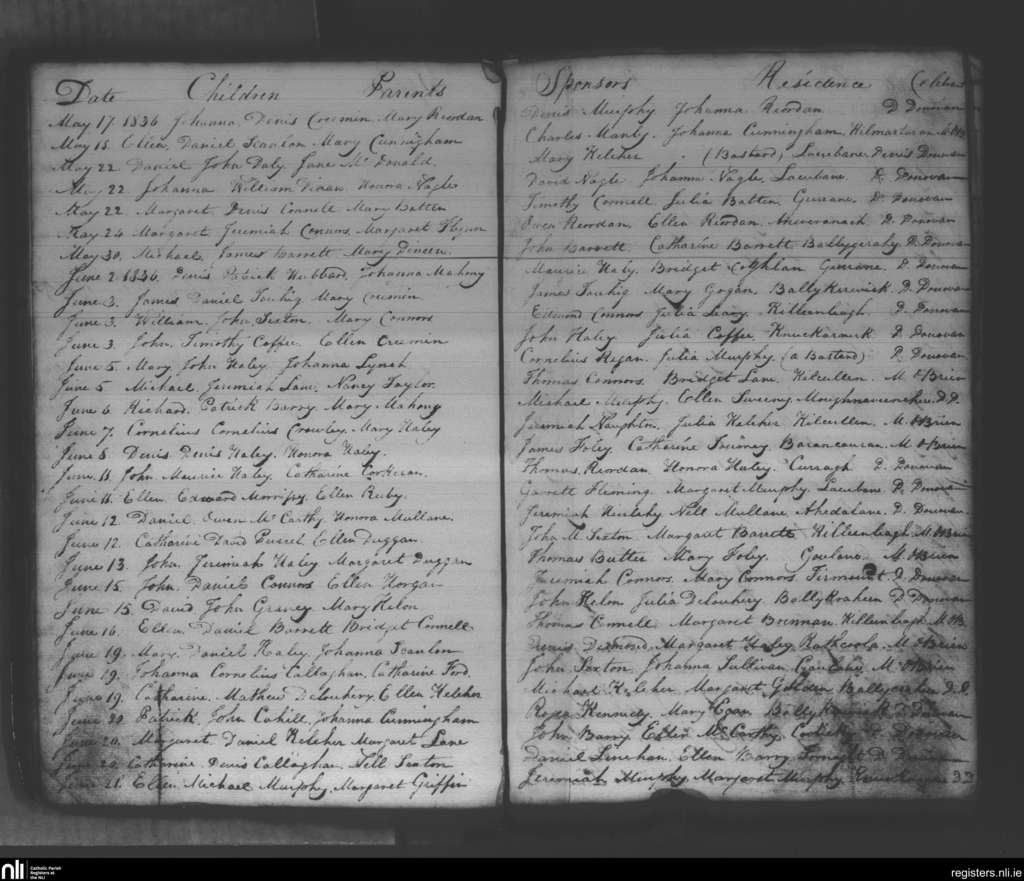 Date Children Parents
May 17 1836 Johanna Denis Creemen Mary Riordan
May 18 Ellen Daniel Scanlon Mary Cunningham
May 22 Daniel John Daly Jane McDonald
May 22 Johanna William Honora Nagle
May 22 Margaret Denis Connell Mary Batten
May 24 Margaret Jeremiah Connors Margaret Flynn
May 30 Michael James Barrett Mary Dineen
June 2 1836 Denis Patrick Hubbard Johanna Mahony
June 3 James Daniel Touhig Mary Creemin
June 3 William John Sexton Mary Connors
June 3 John Timothy Coffee Ellen Creemen
June 5 Mary John Haley Johanna Lynch
June 5 Michael Jeremiah Lane Nancy Taylor
June 6 Richard Patrick Barry Mary Mahony
June 7 Cornelius Cornelius Crowley Mary Haley
June 8 Denis Denis Haley Honora Haley
June 11 John Maurice Haley Catharine Corkeran
June 11 Ellen Edward Morrissy Ellen Ruby
June 12 Daniel Owen McCarthy Honora Mullane
June 12 Catharine David Purcel Ellen Duggan
June 13 John Jeremiah Haley Margaret Duggan
June 15 John Daniel Connors Ellen Horgan
June 15 David John Gravey Mary Helon
June 16 Ellen Daniel Barrett Bridget Connell
June 19 Mary Daniel Healey Johanna Scanlon
June 19 Johanna Cornelius Callaghan Catharine Ford
June 19 Catharine Mathew Delouhery Ellen Kelcher
June 20 Patrick John Cahill Johanna Cunningham
June 20 Margaret Daniel Kelcher Margaret Lane
June 20 Catharine Denis Callaghan Nell Sexton
June 21 Ellen Michael Murphy Margaret Griffin
Sponsors Residence
Denis Murphy Johanna Riordan D Donovan
Charles Manly Johanna Cunningham
Mary Kelcher (Bastard) Lacubane Denis Donovan
David Nagle Johanna Nagle Lacubane D. Donovan
Timothy Connell Julia Batten D Donovan
Owen Riordan Ellen Riordan D Donovan
John Barrett Catharine Barrett D. Donovan
Maurice Haly Bridget Coghlan D. Donovan
James Touhig Mary Grogan D. Donovan
Edmond Connors Julia Leary Killeenleigh D. Donovan
John Haley Julia Coffee D Donovan
Cornelius Regan Julia Murphy (a Bastard) D. Donovan
Thomas Connors Bridget Lane Kilcullen M OBrien
Michael Murphy Ellen Sweeny D.D.
Jeremiah Naughton Julia Kelcher Kilcullen M OBrien
James Foley Catharine M OBrien
Thomas Riordan Honora Haley Curragh D Donovan
Garrett Fleming Margaret Murphy Lacubane D. Donovan
Jeremiah Nell Mullane Ahadalane D. Donovan
John M. Sexton Margaret Barrett Killeenleagh M OBrien
Thomas Butler Mary Foley M OBrien
Jeremiah Connors Mary Connors Firmount D Donovan
John Helon Julia Delouhery D Donovan
Thomas Connell Margaret Brennan Killeenleagh M OB
Denis Desmond Margaret M OBrien
John Sexton Johanna Sullivan M OBrien
Michael Kelcher Margaret Golden D.D.
Roger Kennedy Mary Egan D Donovan
John Barry Ellen McCarthy D Donovan
Daniel Linehan Ellen Barry Fornaght D Donovan
Jeremiah Murphy Margaret Murphy
33
nli
Catholic Parish
Registers at
the NLI
registers.nli.ie